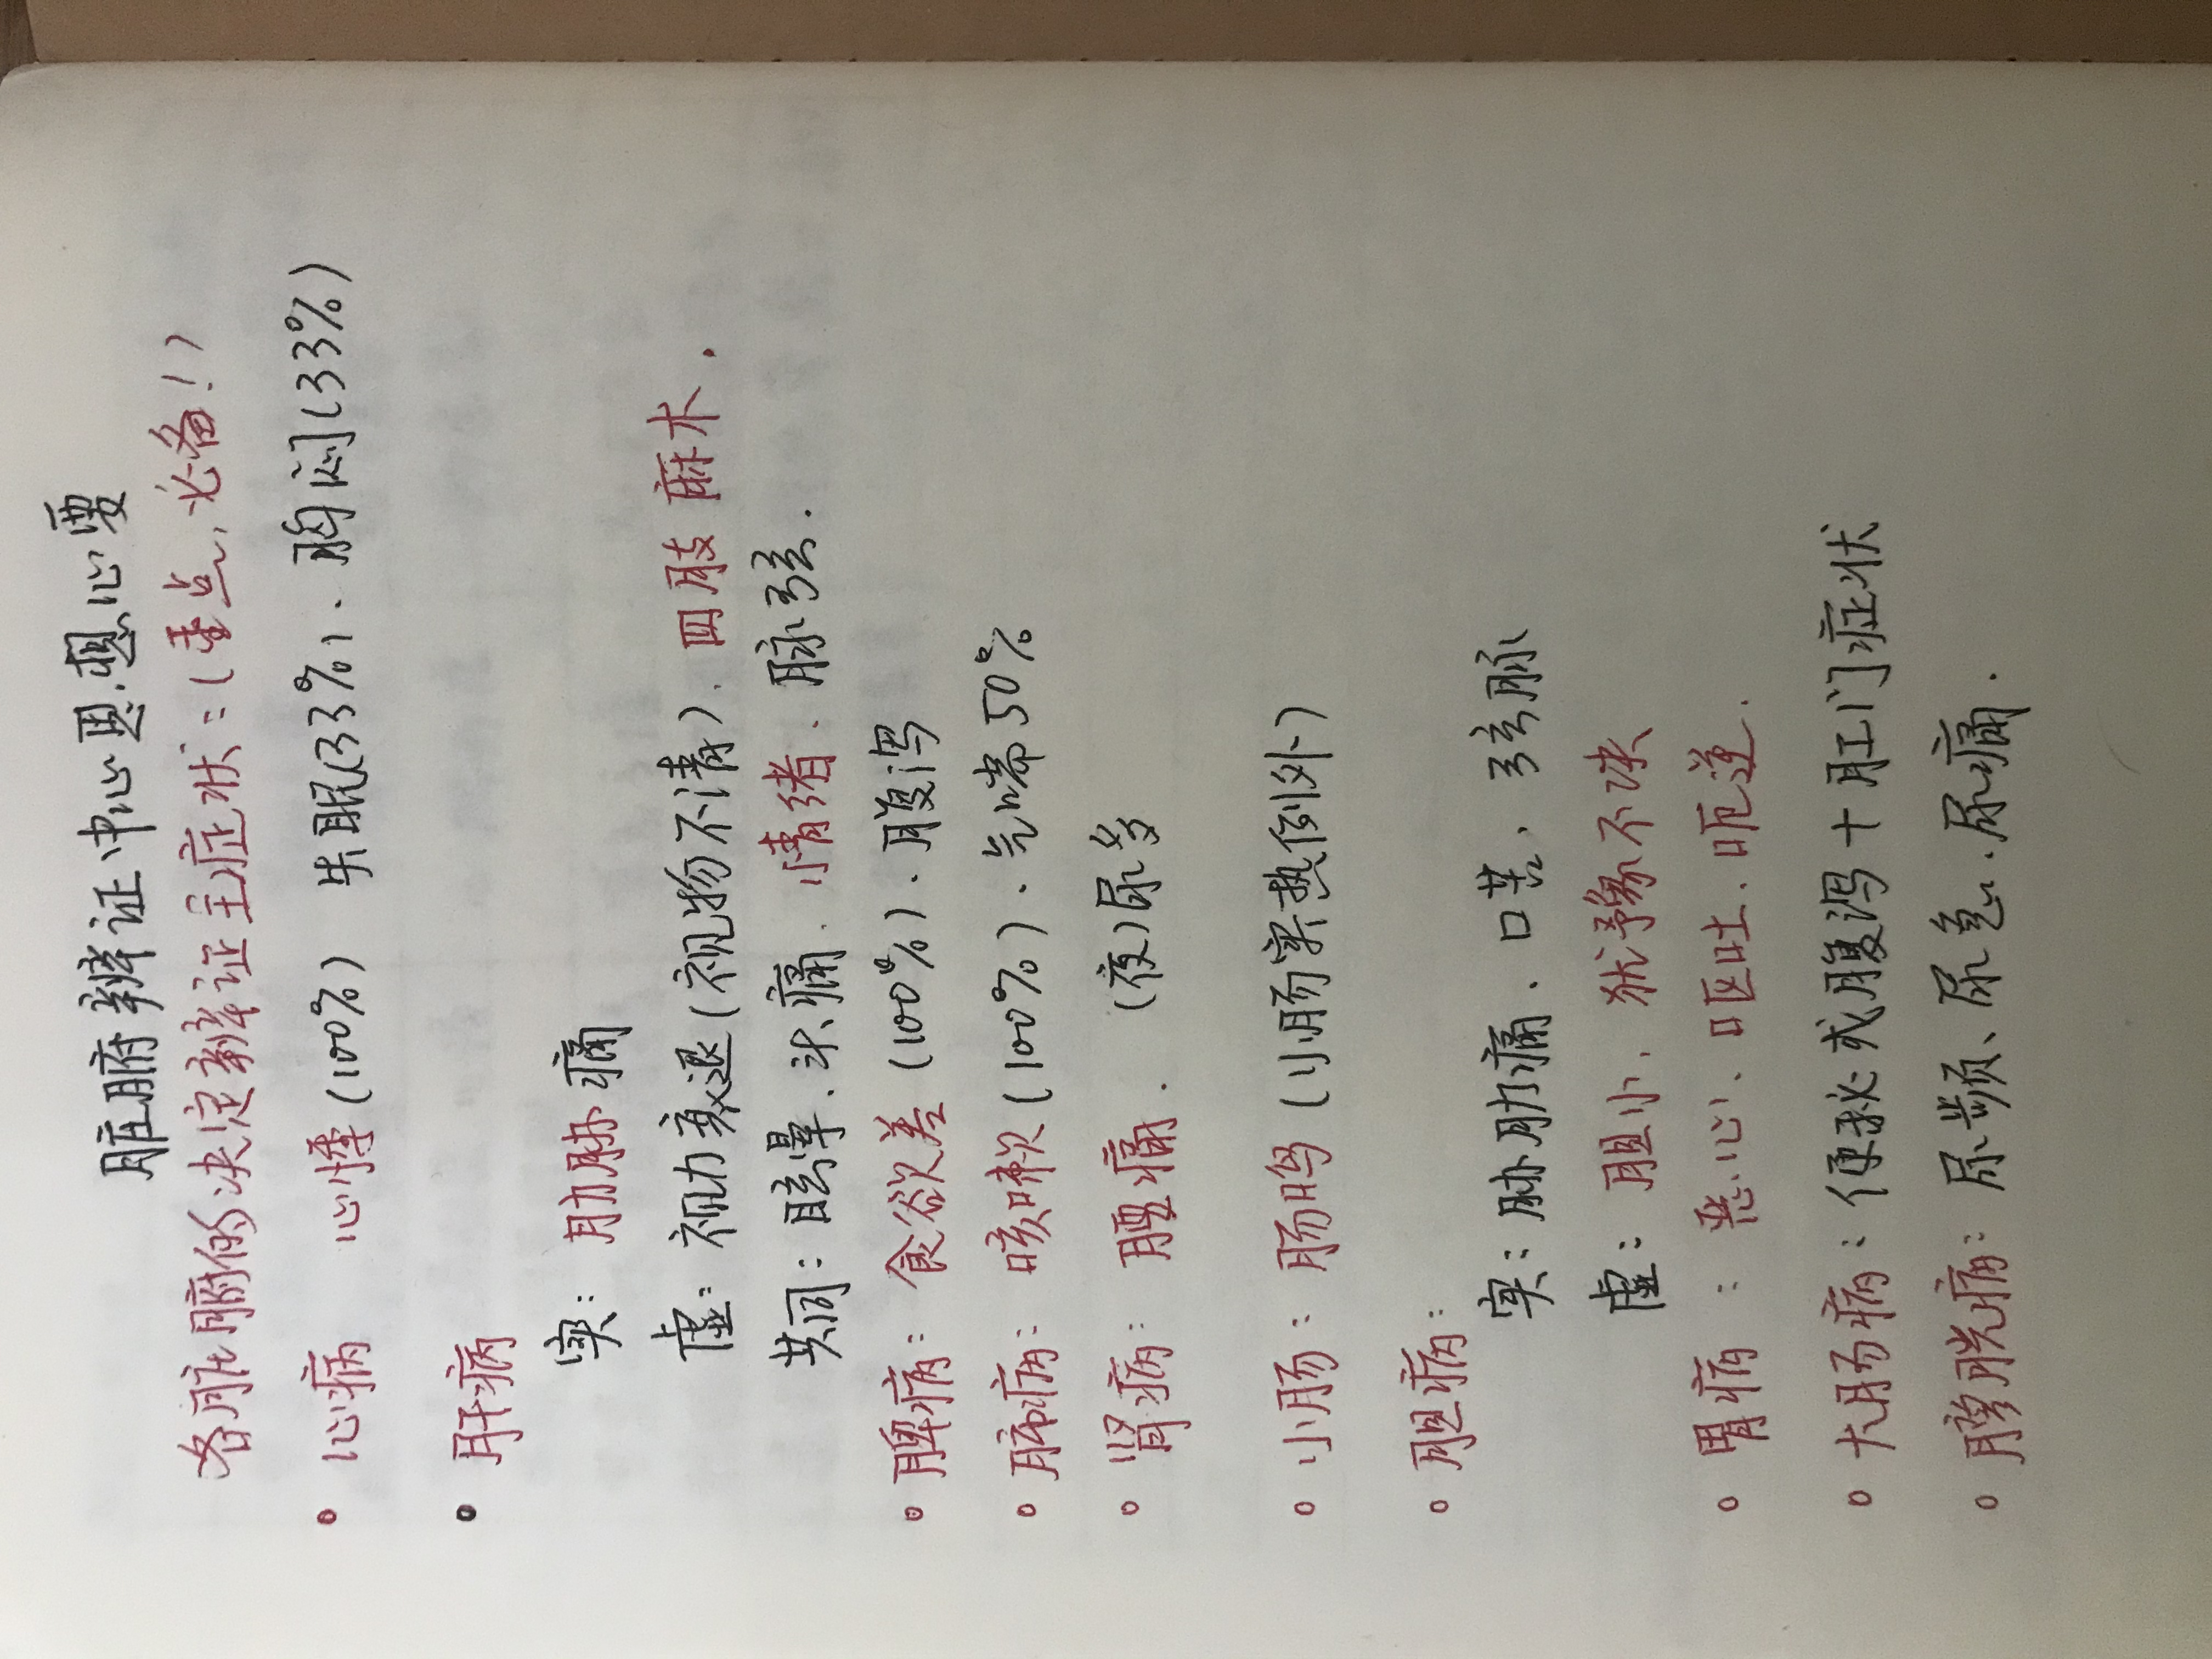 脏腑辨证中心思想心要
各脏腑的决定辨证主症状：（重点，必备！）
心病 心悸（100%） 失眠（33%）、胸闷（33%）
肝病
实：肋胁痛
虚：视力衰退（视物不清）. 四肢麻木.
共同：眩晕. 头痛. 情绪. 脉弦.
脾病：食欲差（100%）. 腹泻
肺病：咳嗽（100%）. 气喘50%
肾病：腰痛. （夜）尿多
小肠：肠鸣（小肠实热例外）
胆病：
实：胁肋痛、口苦、弦脉
虚：胆小. 犹予不决
胃病：恶心、呕吐. 呃逆.
大肠病：便秘或腹泻+肛门症状
膀胱病：尿频、尿急. 尿痛.